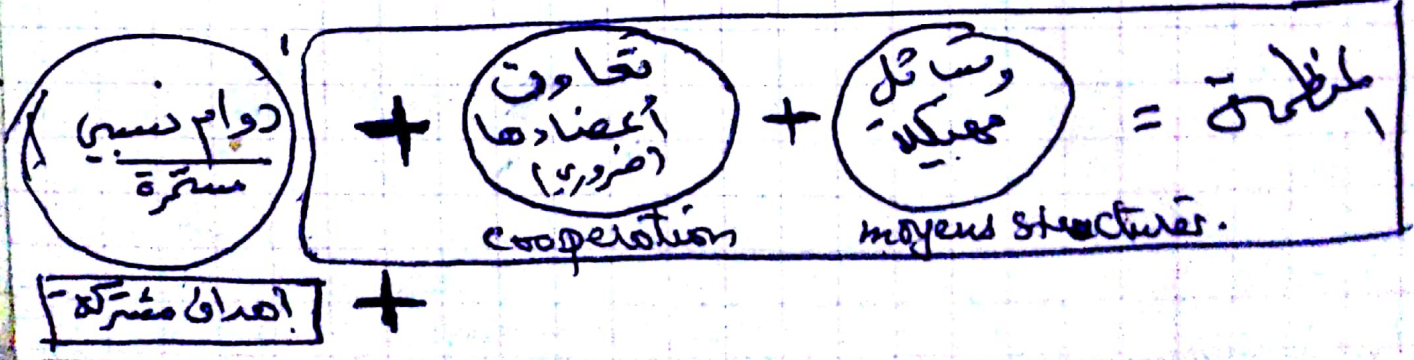 المنظمة =
وسائل
مهيكلة
+
تعاون
أعضادها
(ضروري)
+
دوام نسبي
مستمرة
moyens structurés.
cooperation
+
أهداف مشتركة